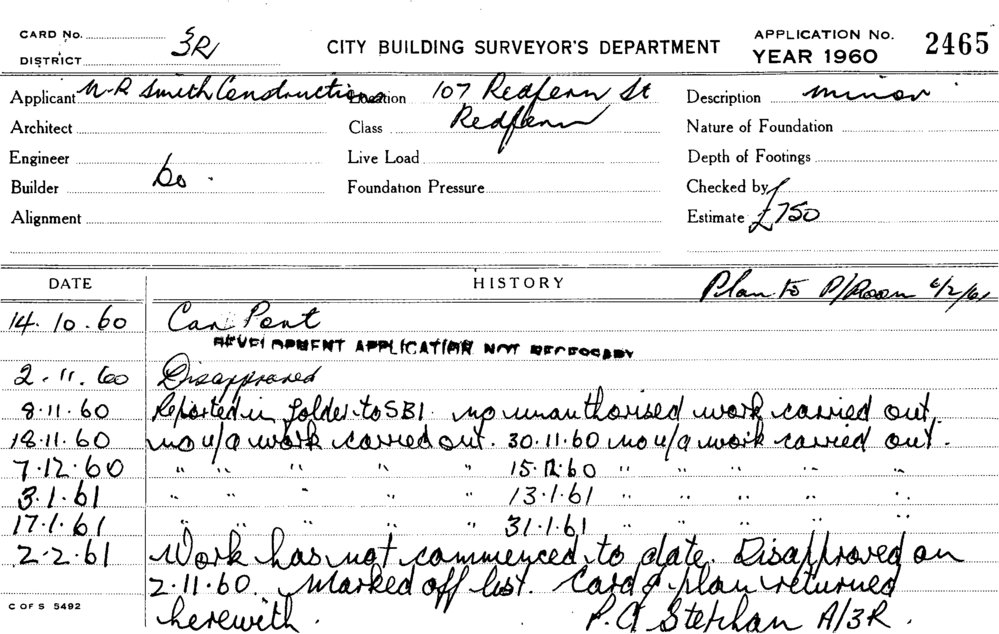 CARD No. 3R CITY BUILDING SURVEYOR'S DEPARTMENT APPLICATION No. 2465
DISTRICT YEAR 1960
Applicant N-R Smith Constructions Location 107 Redfern St Description minor
Architect Class Redfern Nature of Foundation
Engineer Live Load Depth of Footings
Builder Do. Foundation Pressure Checked by
Alignment Estimate £750
DATE HISTORY Plan to P/Room 6/2/61
14.10.60 Car Port
DEVELOPMENT APPLICATION NOT NECESSARY
2.11.60 Disapproved
8.11.60 Reported in folder to SBI. no unauthorised work carried out.
18.11.60 no u/a work carried out. 30.11.60 no u/a work carried out.
7.12.60 " " " " " 15.12.60 " " " " "
3.1.61 " " " " " 13.1.61 " " " " "
17.1.61 " " " " " 31.1.61 " " " " "
2.2.61 Work has not commenced to date. Disapproved on
2.11.60. Marked off list. Card & plan returned
C OF S 5492 herewith. A/3R.